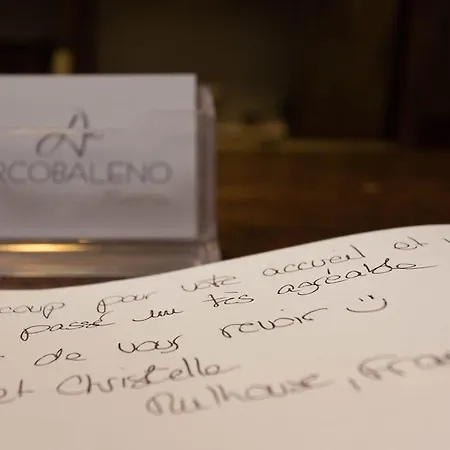 RCOBALENO
coup pour votre accueil et
passé un très agréable
de vous revoir :)
et Christelle
Mulhouse, Fra